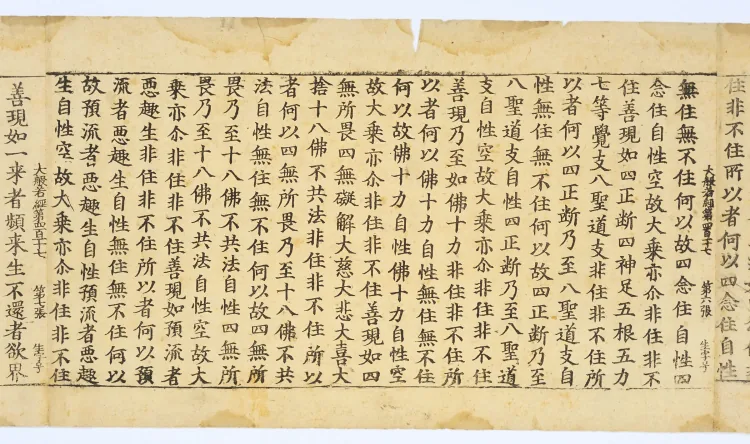 住非不住所以者何以四念住自性
大般若經第四百十七 第六張
無住無不住何以故四念住自性四
念住自性空故大乘亦尒非住非不
住善現如四正断四神足五根五力
七等覺支八聖道支非住非不住所
以者何以四正断乃至八聖道支自
性無住無不住何以故四正断乃至
八聖道支自性四正断乃至八聖道
支自性空故大乘亦尒非住非不住
善現乃至如佛十力非住非不住所
以者何以佛十力自性無住無不住
何以故佛十力自性佛十力自性空
故大乘亦尒非住非不住善現如四
無所畏四無礙解大慈大悲大喜大
捨十八佛不共法非住非不住所以
者何以四無所畏乃至十八佛不共
法自性無住無不住何以故四無所
畏乃至十八佛不共法自性四無所
畏乃至十八佛不共法自性空故大
乘亦尒非住非不住善現如預流者
惡趣生非住非不住所以者何以預
流者惡趣生自性無住無不住何以
故預流者惡趣生自性預流者惡趣
生自性空故大乘亦尒非住非不住
大般若經第四百十七 第七張
善現如一来者頻来生不還者欲界